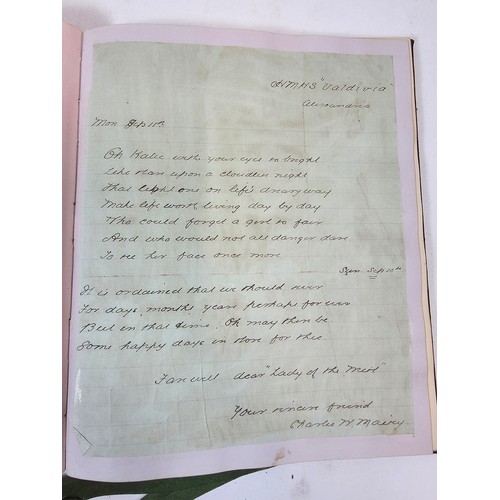 HMHS "Valdivia"
Alexandria
Mon Sep 11th
Oh Katie with your eyes so bright
Like stars upon a cloudless night
That light one on life's dreary way
Make life worth living day by day
Who could forget a girl so fair
And who would not all danger dare
To see her face once more
Sun. Sep 10th
It is ordained that we should sever
For days, months, years perhaps for ever
But in that time. Oh may there be
Some happy days in store for thee
Farewell dear "Lady of the
Your sincere friend
Charles W.